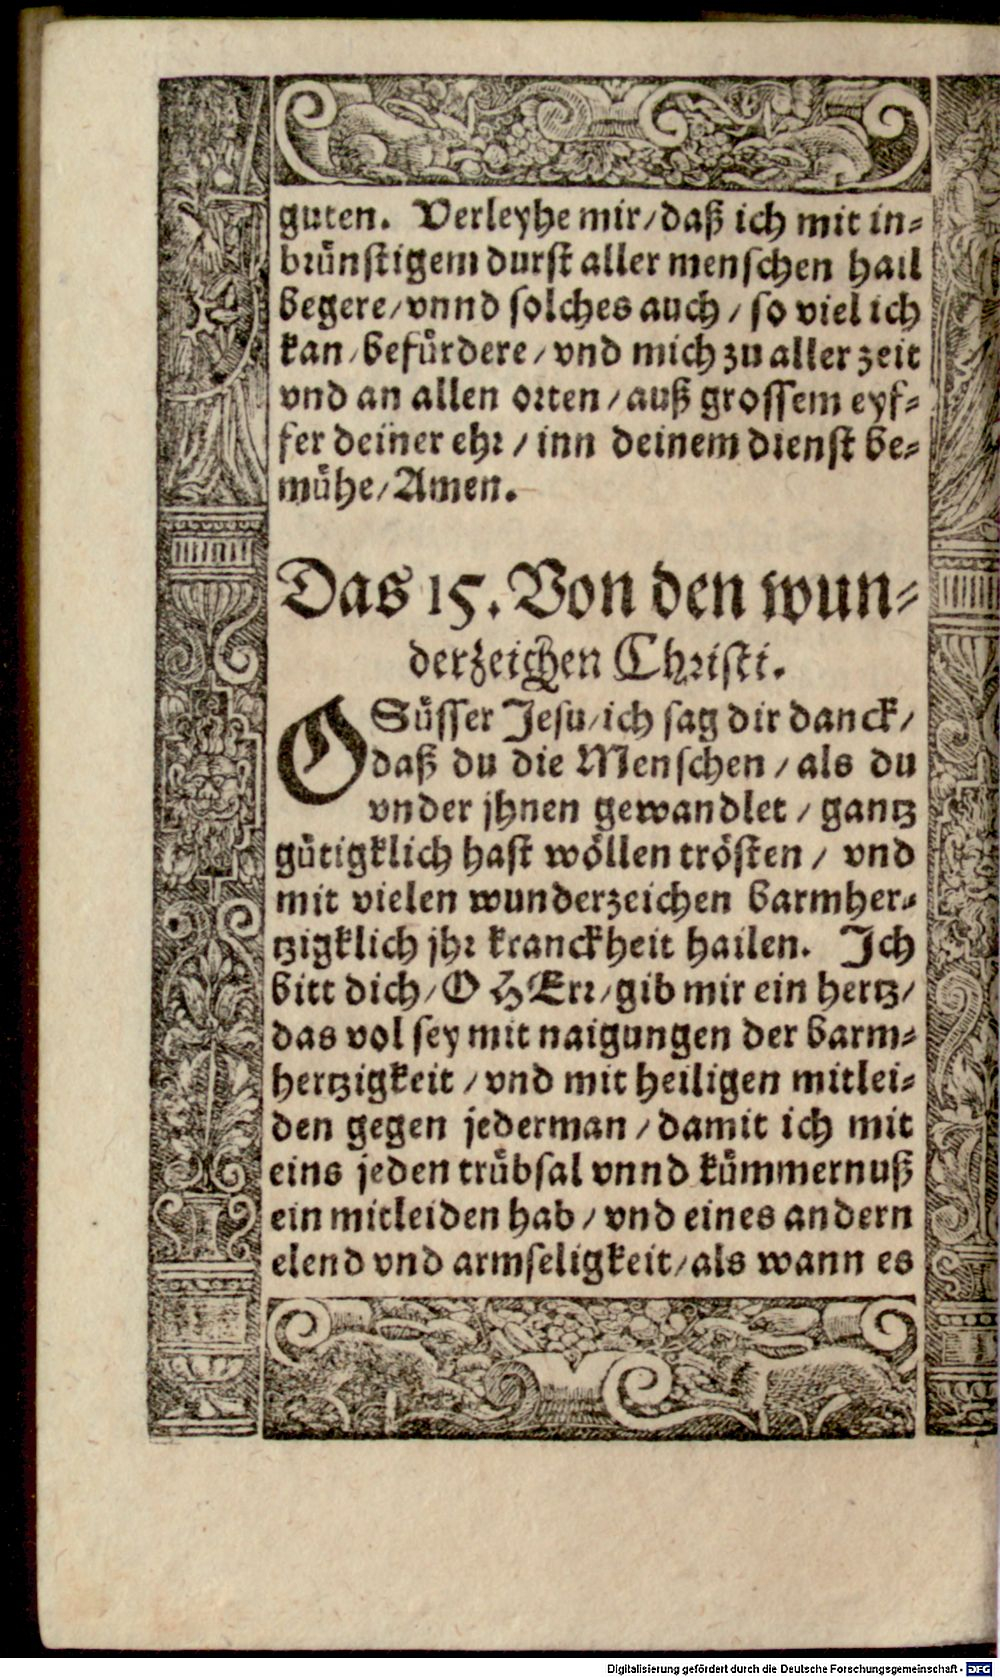 guten. Verleyhe mir/daß ich mit in⸗
brünstigem durst aller menschen hail
begere/vnnd solches auch/so viel ich
kan/befürdere/vnd mich zu aller zeit
vnd an allen orten/auß grossem eyf⸗
fer deiner ehr/inn deinem dienst be⸗
mühe/Amen.
Das 15. Von den wun⸗
derzeichen Christi.
O Süsser Jesu/ich sag dir danck/
daß du die Menschen/als du
vnder jhnen gewandlet/gantz
gütigklich hast wöllen trösten/vnd
mit vielen wunderzeichen barmher⸗
tzigklich jhr kranckheit hailen. Ich
bitt dich/O HErr/gib mir ein hertz/
das vol sey mit naigungen der barm⸗
hertzigkeit/vnd mit heiligen mitlei⸗
den gegen jederman/damit ich mit
eins jeden trübsal vnnd kümmernuß
ein mitleiden hab/vnd eines andern
elend vnd armseligkeit/als wann es
Digitalisierung gefördert durch die Deutsche Forschungsgemeinschaft - DFG